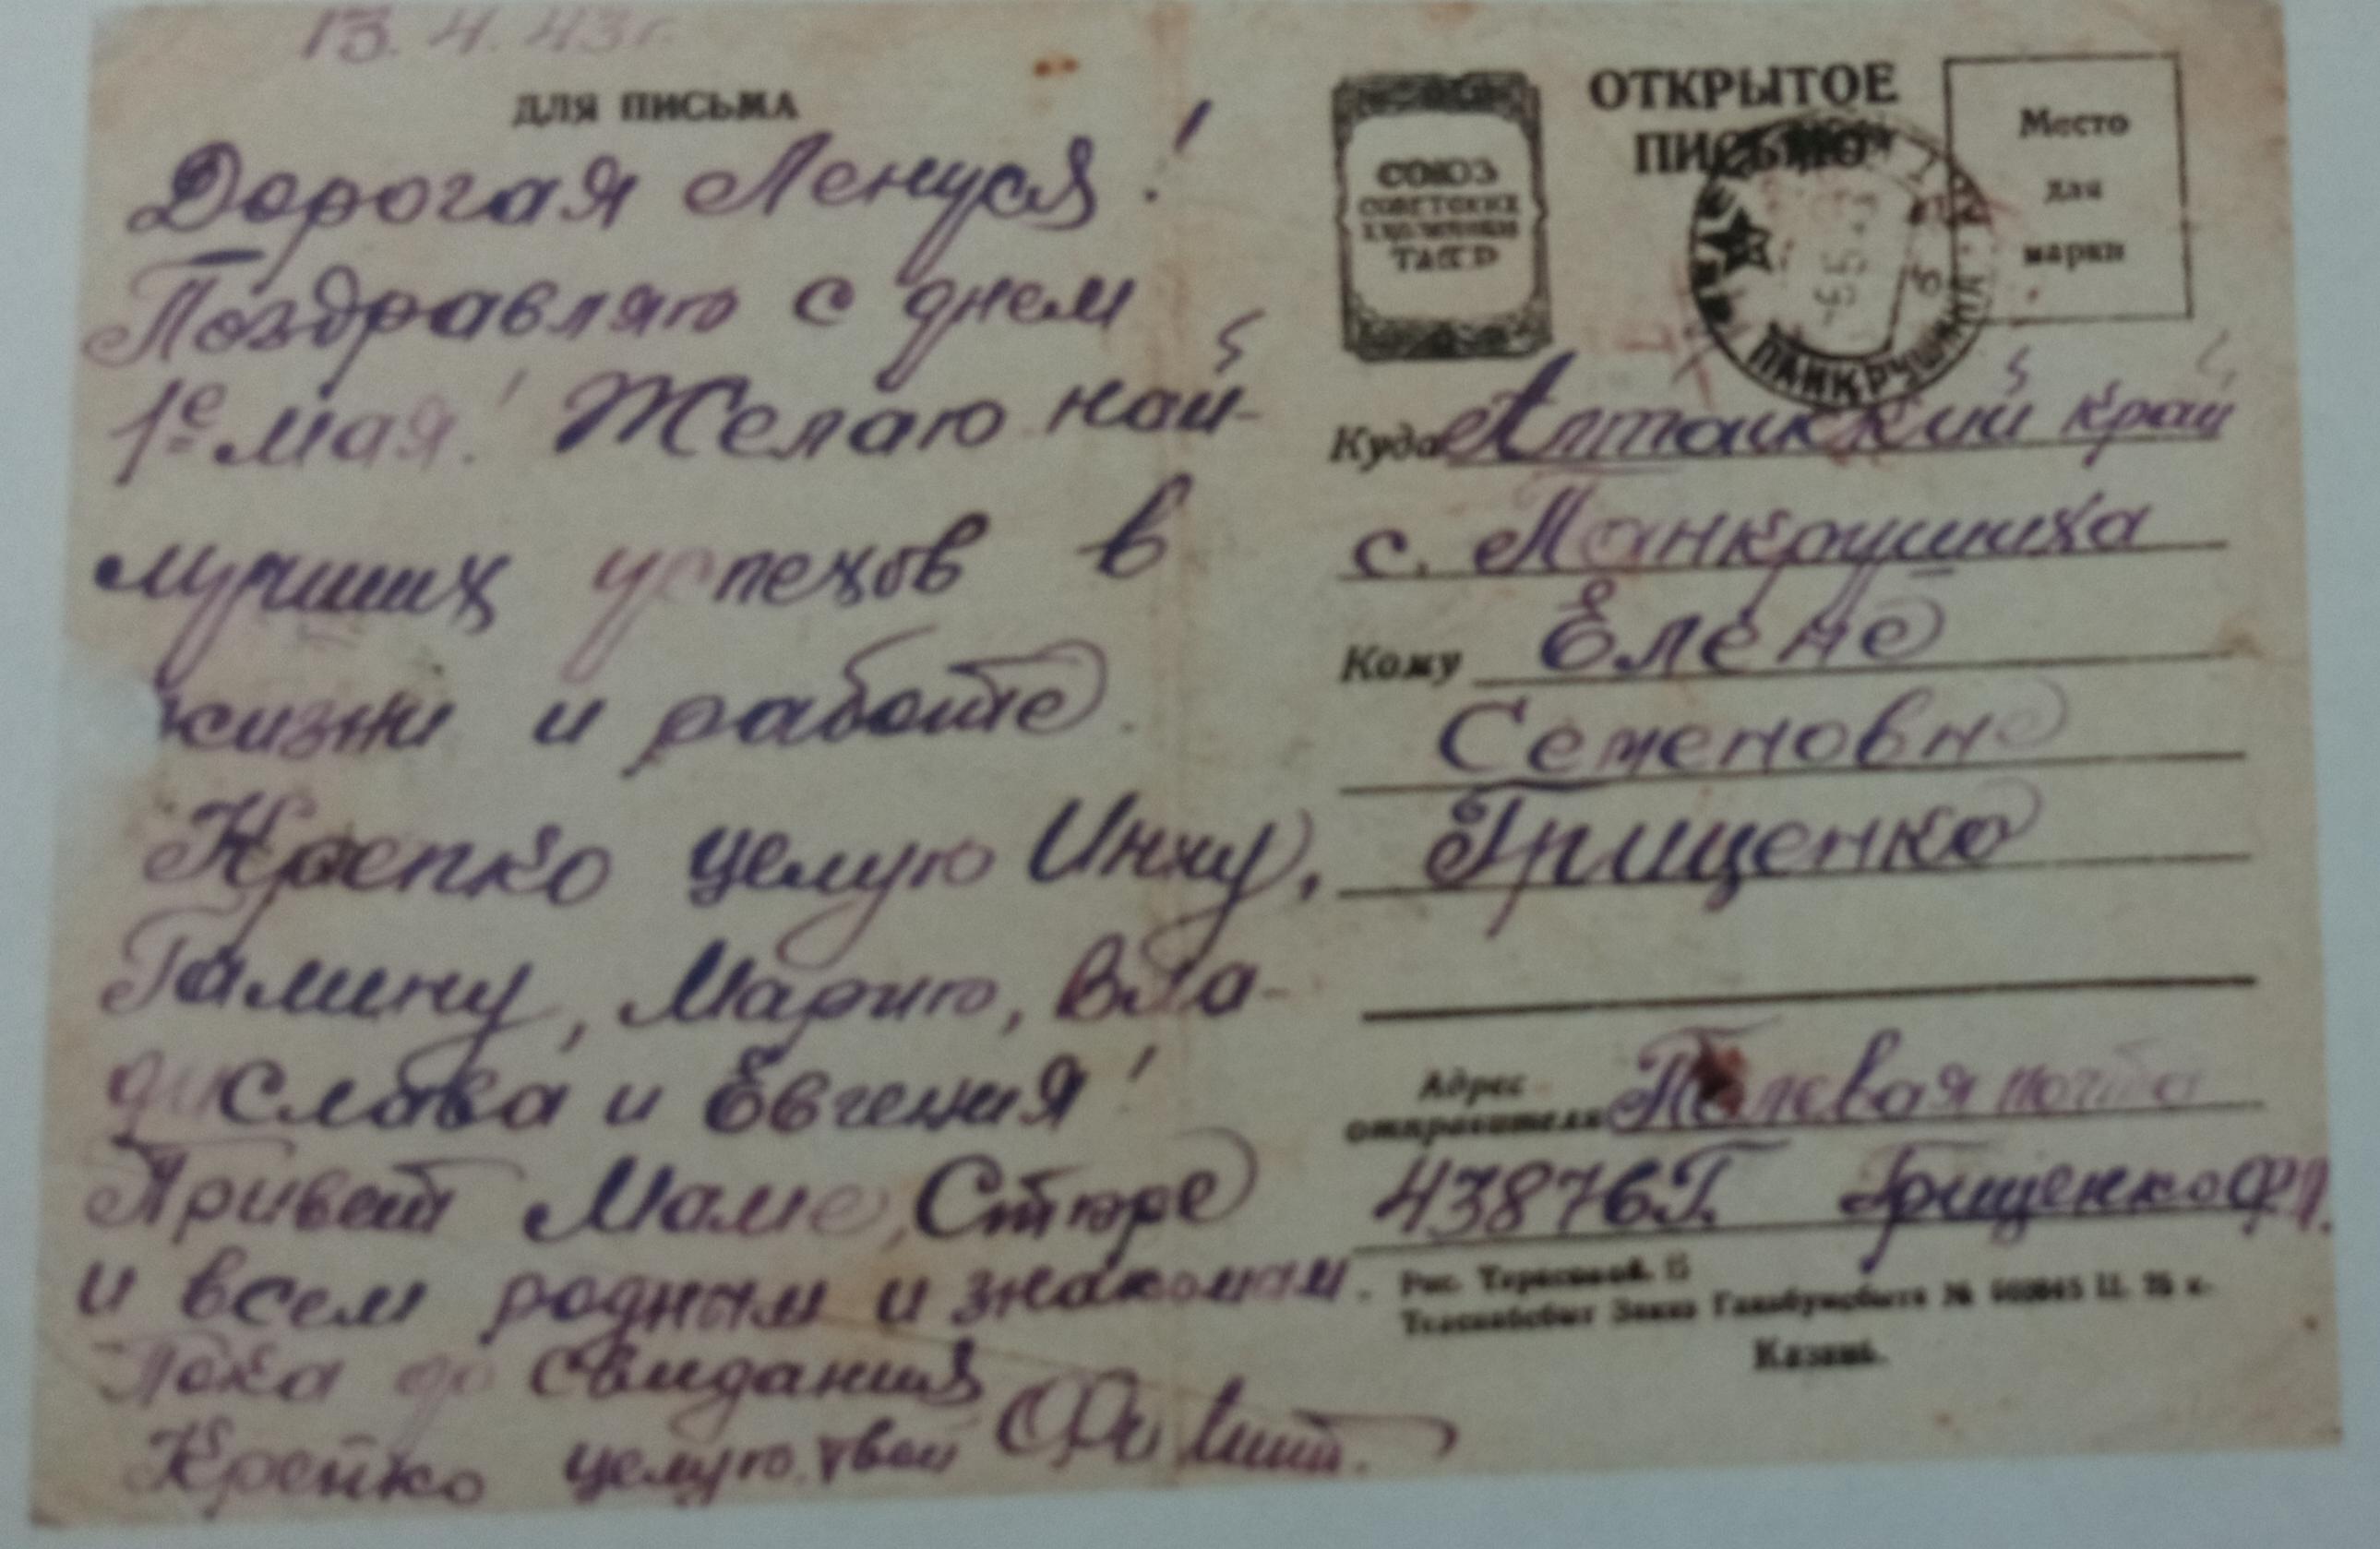 13.4.43г.
ДЛЯ ПИСЬМА
Дорогая Ленуся!
Поздравляю с днем
1е мая! Желаю най-
лучших успехов в
жизни и работе.
Крепко целую Инну,
Галину, Марию, Вла-
дислава и Евгения!
Привет Маме, Стюре
и всем родным и знакомым.
Пока до свидания
Крепко целую твой
СОЮЗ
СОВЕТСКИХ
ХУДОЖНИКОВ
ТАССР
ОТКРЫТОЕ
ПИСЬМО
Место
для
марки
ПАНКРУШИХА
Куда Алтайский край
с. Панкрушиха
Кому Елене
Семеновне
Грищенко
Адрес
отправителя Полевая почта
43876Г. Грищенко Ф.П.
Рис.
Казань.